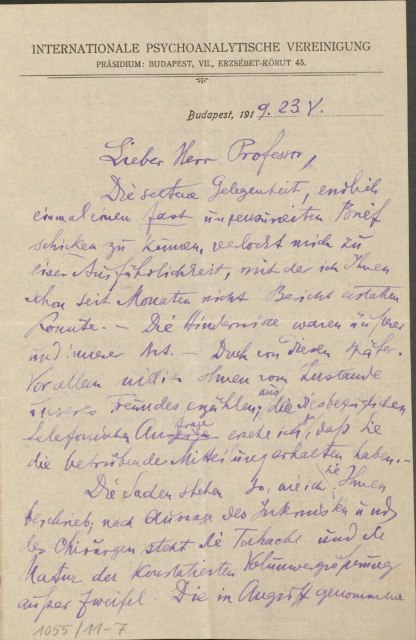 INTERNATIONALE PSYCHOANALYTISCHE VEREINIGUNG
PRÄSIDIUM: BUDAPEST, VII., ERZSÉBET-KÖRUT 45.
Budapest, 1919. 23. V.
Lieber Herr Professor,
Die seltene Gelegenheit, endlich
einmal einen fast unzensurierten Brief
schicken zu können, verlockt mich zu
einer Ausführlichkeit, mit der ich Ihnen
schon seit Monaten nicht Bericht erstatten
konnte. – Die Hindernisse waren äußerer
und innerer Art. – Doch von diesen später.
Vor allem will ich Ihnen vom Zustande
unseres Freundes erzählen, aus die diesbezüglichen
telefonischen Anfrage ersehe ich, daß Sie
die betrübende Mitteilung erhalten haben. –
Die Sachen stehen so, wie ich sie Ihnen
beschrieb; nach Aussage des Internisten und
des Chirurgen steht die Tatsache und die
Natur der konstatierten Volumvergrößerung
außer Zweifel. Die in Angriff genommene
1055/11-7